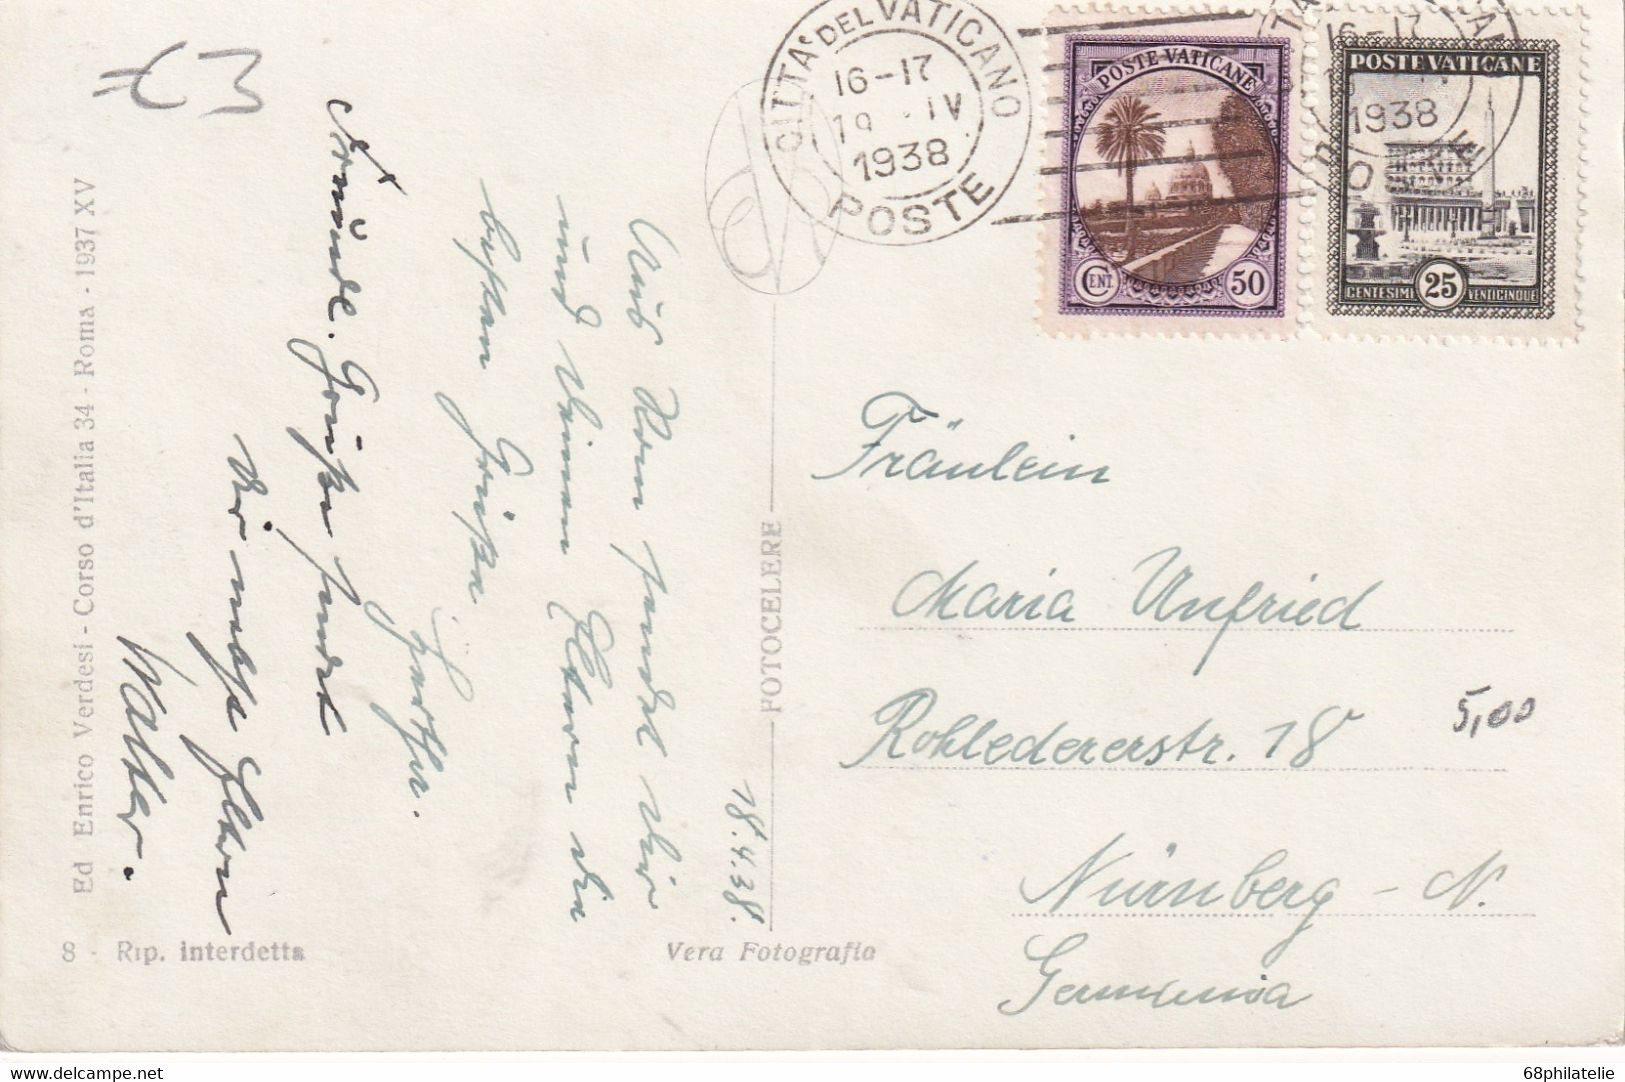 CITTA DEL VATICANO
16-17
IV
1938
POSTE
POSTE VATICANE
CENT. 50
16-17
1938
POSTE VATICANE
CENTESIMI 25 VENTICINQUE
Fräulein
Maria Unfried
Rohledererstr. 18
5,00
Nürnberg - N.
Germania
18.4.38.
Aus Rom sendet Dir
und Deinen Eltern die
besten Grüße
Freunde. Grüße sendet
Dir nebst Eltern
Walter.
FOTOCELERE
Ed Enrico Verdesi - Corso d'Italia 34 - Roma - 1937 XV
8 - Rip. interdetta
Vera Fotografia
www.delcampe.net
68philatelie